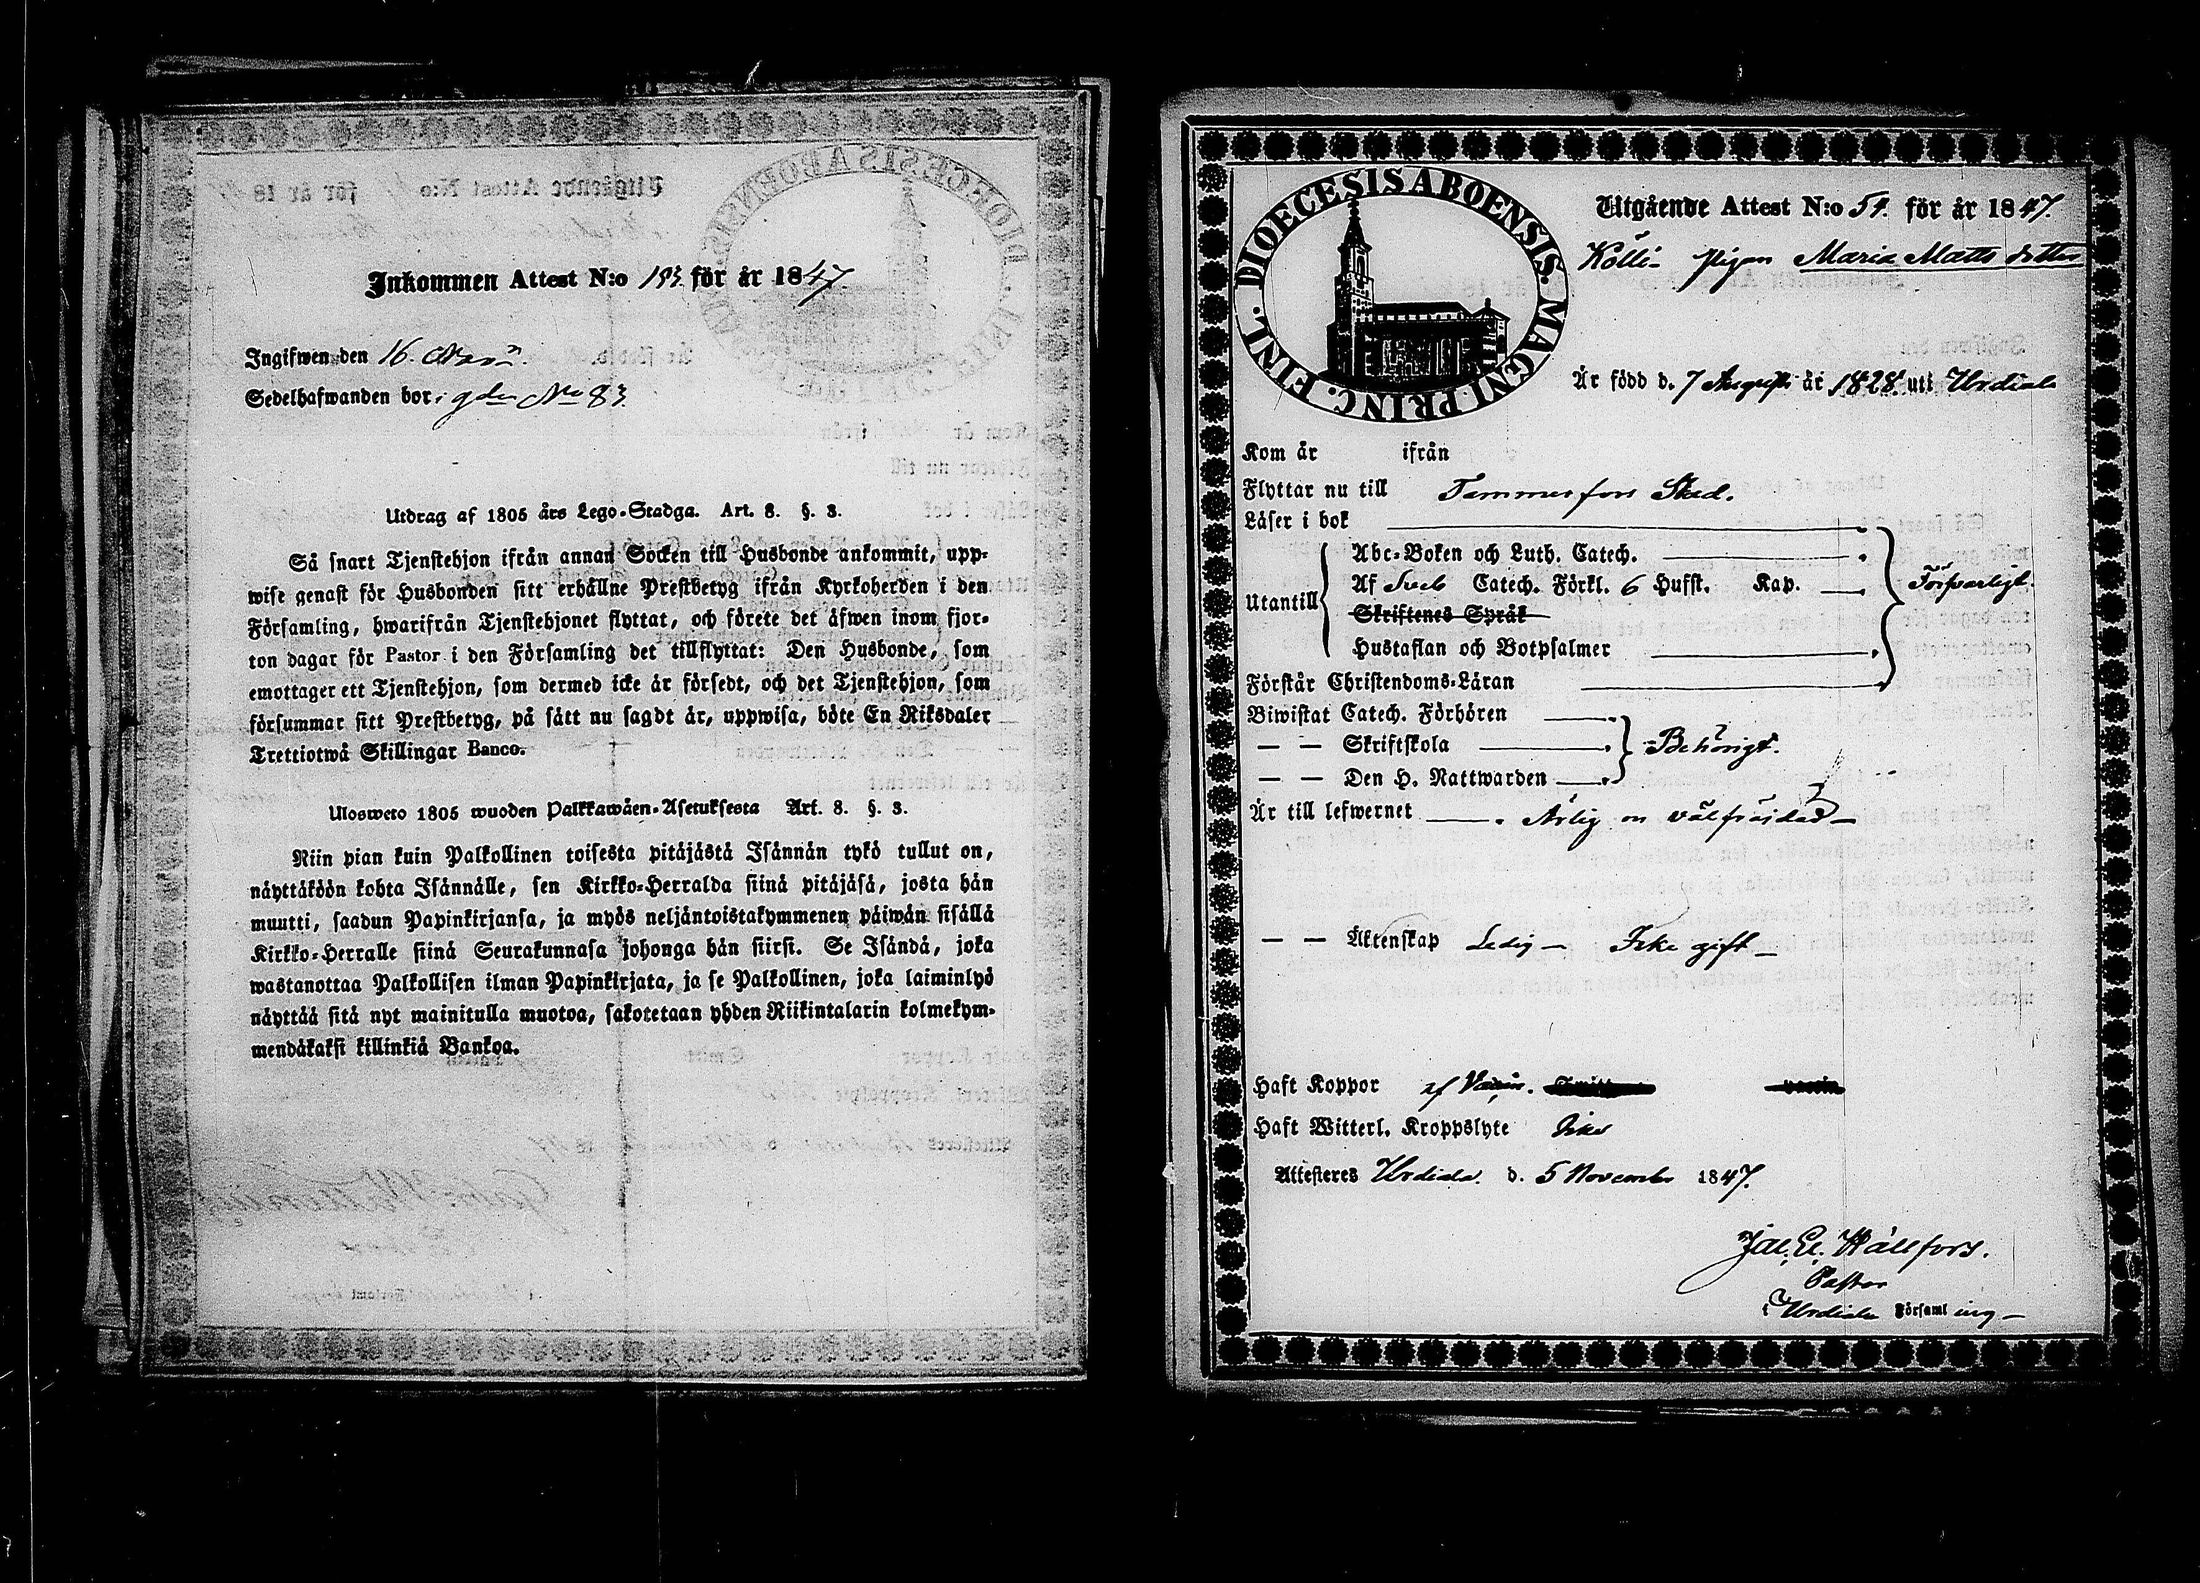 Inkommen Attest N:o 193 för år 1847.
Ingifwen den 16. 
Sedelhafwanden bor i gden No 83.
Utdrag af 1805 års Lego-Stadga. Art. 8. §. 3.
Så snart Tjenstehjon ifrån annan Socken till Husbonde ankommit, upp-
wise genast för Husbonden sitt erhållne Prestbetyg ifrån Kyrkoherden i den
Församling, hwarifrån Tjenstehjonet flyttat, och förete det äfwen inom fjor-
ton dagar för Pastor i den Församling det tillflyttat: Den Husbonde, som
emottager ett Tjenstehjon, som dermed icke är försedt, och det Tjenstehjon, som
försummar sitt Prestbetyg, på sätt nu sagdt är, uppwisa, böte En Riksdaler
Trettiotwå Skillingar Banco.
Ulosweto 1805 wuoden Palkkawäen-Asetuksesta Art. 8. §. 3.
Niin pian kuin Palkollinen toisesta pitäjästä Isännän tykö tullut on,
näyttäköön kohta Isännälle, sen Kirkko-Herralda siinä pitäjäsä, josta hän
muutti, saadun Papinkirjansa, ja myös neljäntoistakymmenen päiwän sisällä
Kirkko-Herralle siinä Seurakunnasa johonga hän siirsi. Se Isändä, joka
wastanottaa Palkollisen ilman Papinkirjata, ja se Palkollinen, joka laiminlyö
näyttää sitä nyt mainitulla muotoa, sakotetaan yhden Riikintalarin kolmekym-
mendäkaksi killinkiä Bankoa.
DIOECESIS ABOENSIS. MAGNI PRINC. FINL.
Utgående Attest N:o 54. för år 1847.
Kölli- pigan Maria Matts dotter
Är född d. 7 Augusti år 1828 uti Urdiala
Kom år ifrån
Flyttar nu till Tammerfors Stad.
Läser i bok
Utantill
Abc-Boken och Luth. Catech.
Af Sveb Catech. Förkl. 6 Hufst. Kap.
Skriftenes Språk
Hustaflan och Botpsalmer
Förstår Christendoms-Läran
Försvarligt.
Biwistat Catech. Förhören
— — Skriftskola
— — Den H. Nattwarden
Behörigt.
Är till lefwernet Ärlig on välfräjdad
— — Äktenskap Ledig — Icke gift —
Haft Koppor af Vaccin.
Haft Witterl. Kroppslyte Icke
Attesteres Urdiala d. 5 November 1847.
Jac. El. Hällfors.
Pastor
i Urdiala Församl ing —